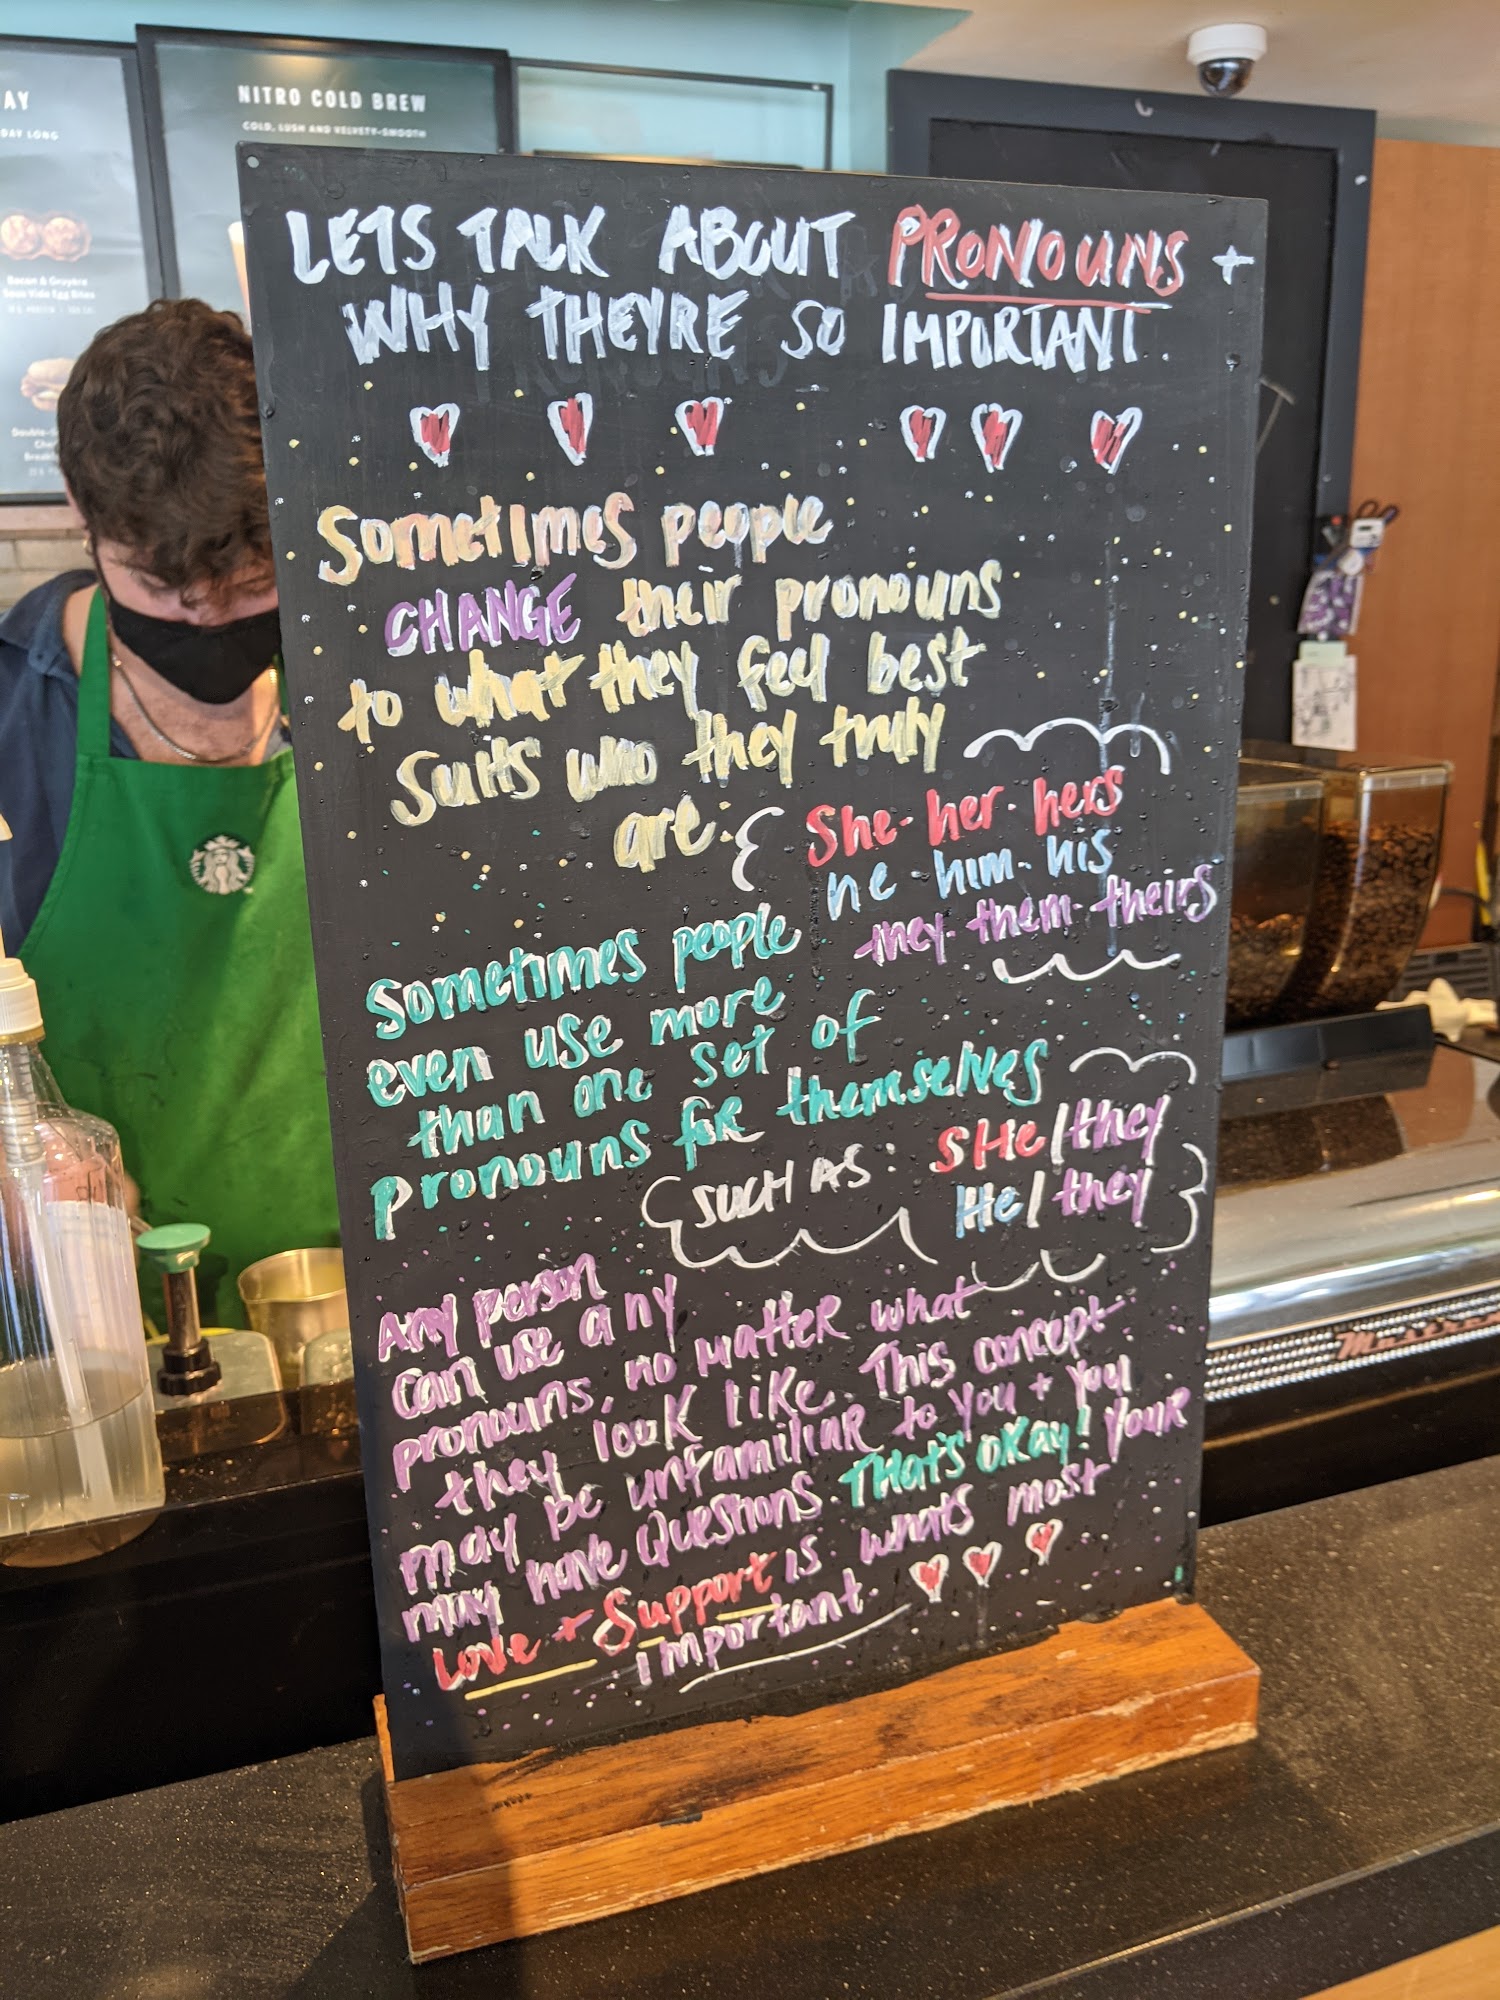 AY
DAY LONG
Bacon & Gruyère
Sous Vide Egg Bites
NITRO COLD BREW
COLD, LUSH AND VELVETY-SMOOTH
LETS TALK ABOUT PRONOUNS +
WHY THEYRE SO IMPORTANT
Sometimes people
CHANGE their pronouns
to what they feel best
suits who they truly
are.
She-her-hers
he-him-his
they-them-theirs
Sometimes people
even use more
than one set of
pronouns for themselves
SUCH AS: SHe/they
He/they
Any person
can use any
pronouns, no matter what
they look like. This concept
may be unfamiliar to you + you
may have questions. THat's okay! your
Love + Support is whats most
important.